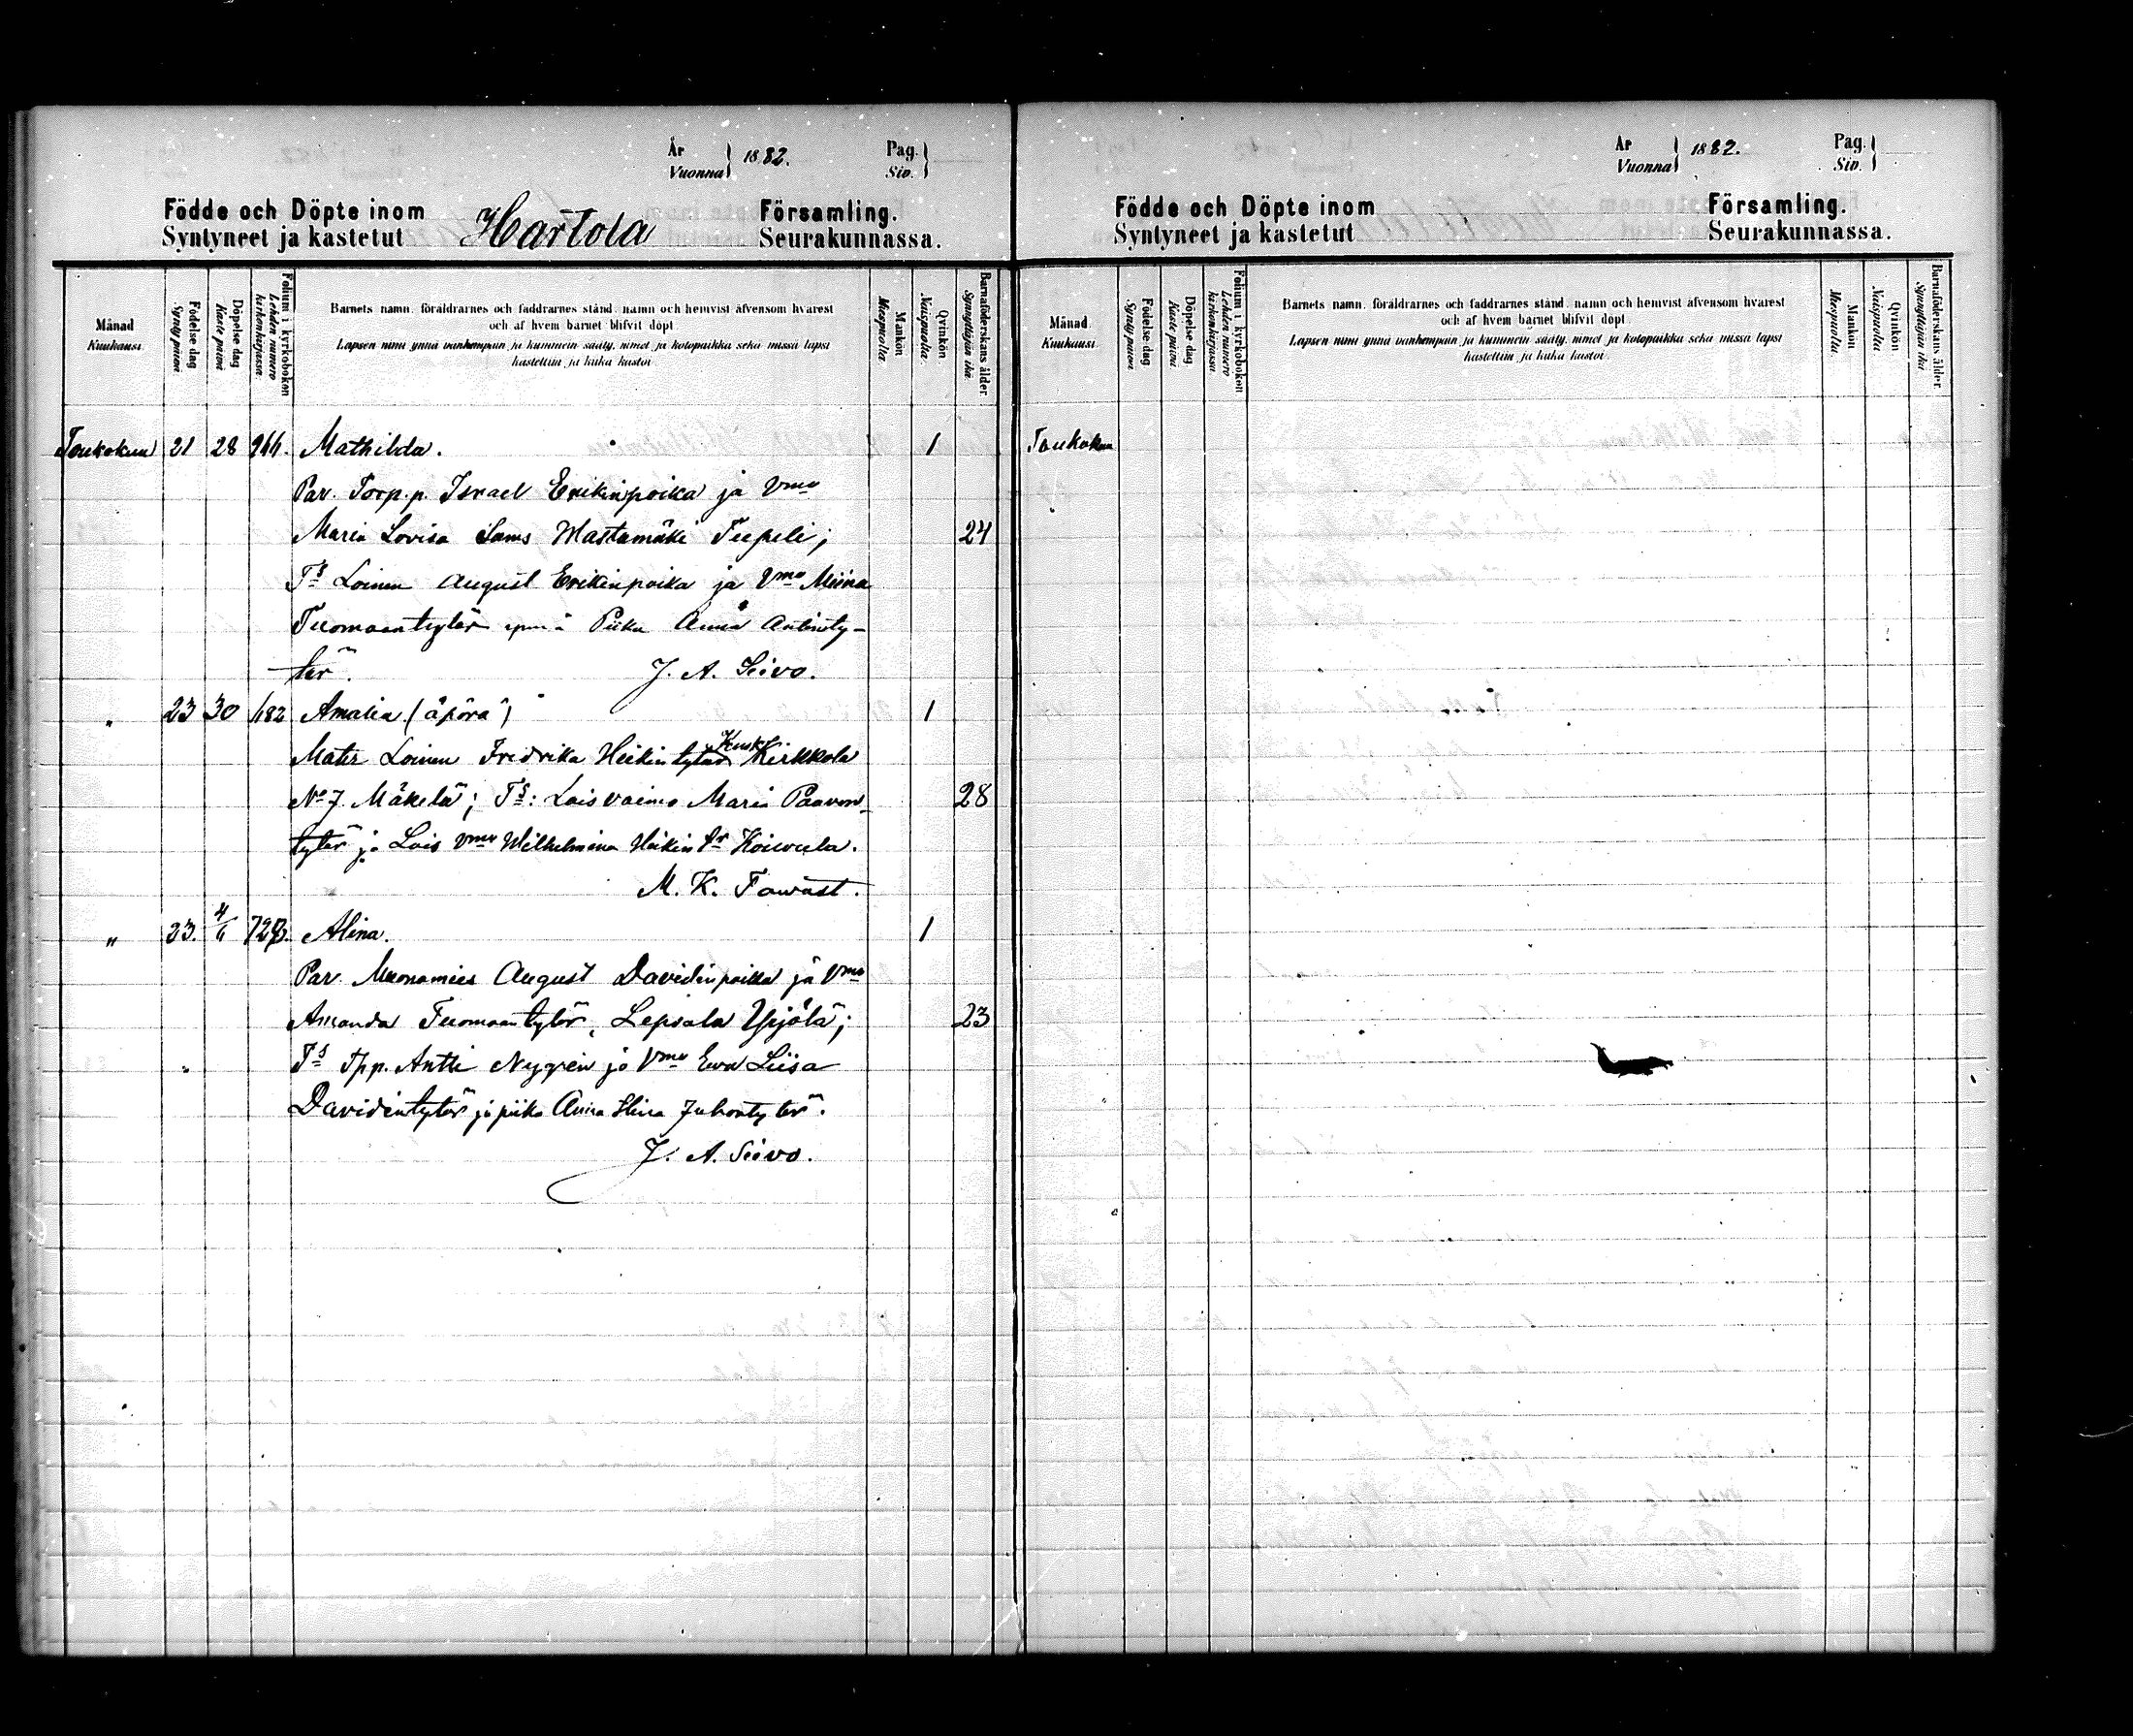 År
Vuonna } 1882.
Pag.
Siv. }
Födde och Döpte inom Hartola Församling.
Syntyneet ja kastetut Seurakunnassa.
Månad
Kuukausi
Födelse dag
Synty päivä
Döpelse dag
Kaste päivä
Folium i kyrkoboken
Lehden numero kirkonkirjassa.
Barnets namn, föräldrarnes och faddrarnes stånd, namn och hemvist äfvensom hvarest
och af hvem barnet blifvit döpt
Lapsen nimi ynnä vanhempain ja kummein sääty, nimet ja kotopaikka sekä missä lapsi
kastettiin ja kuka kastoi
Mankön
Miespuolia.
Qvinkön
Naispuolia.
Barnaföderskans ålder
Synnyttäjän ikä
Toukokuu 21 28 966. Mathilda. 1
Par. Torp.p. Israel Erikinpoika ja Vmo
Maria Lovisa Sams Mastamäki Teepeli; 24
Ts Loinen August Erikinpoika ja Vmo Miina
Tuomaantytär ynnä Piika Anna Antinty-
tär. J. A. Seivo.
" 23 30 682 Amalia (äpärä) 1
Mater Loinen Fredrika Heikintytär Kirkkola
No 7. Mäkelä; Ts: Lois vaimo Maria Paavon-
tytär ja Lois Vmo Wilhelmina Heikin tr Koivula. 28
M. K. Tawast.
" 23. 4/6 723. Alina. 1
Par. Muonamies August Davidinpoika ja Vmo
Amanda Tuomaantytär, Lepsala Yrjölä; 23
Ts Tpp. Antti Nygren ja Vmo Ewa Liisa
Davidintytär ja piika Anna Stina Juhontytär.
J. A. Seivo.
År
Vuonna } 1882.
Pag.
Siv. }
Födde och Döpte inom Församling.
Syntyneet ja kastetut Seurakunnassa.
Månad
Kuukausi
Födelse dag
Synty päivä
Döpelse dag
Kaste päivä
Folium i kyrkoboken
Lehden numero kirkonkirjassa
Barnets namn, föräldrarnes och faddrarnes stånd, namn och hemvist äfvensom hvarest
och af hvem barnet blifvit döpt
Lapsen nimi ynnä vanhempain ja kummein sääty, nimet ja kotopaikka sekä missä lapsi
kastettiin ja kuka kastoi.
Mankön
Miespuolia
Qvinkön
Naispuolia
Barnaföderskans ålder.
Synnyttäjän ikä
Toukokuu